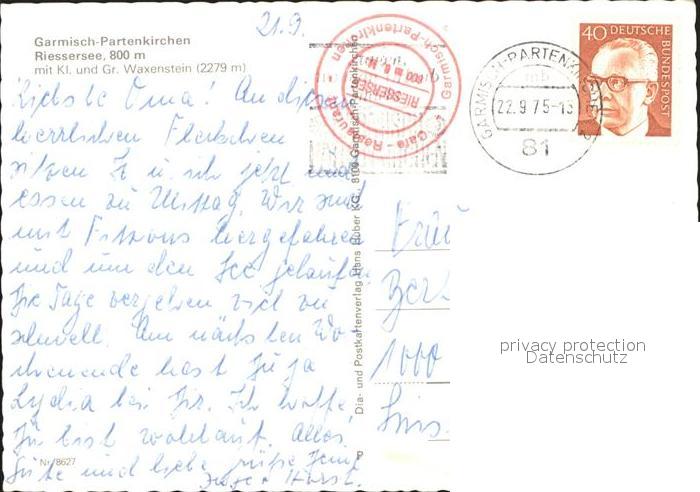 21.9.
Garmisch-Partenkirchen
Riessersee, 800 m
mit Kl. und Gr. Waxenstein (2279 m)
Liebste Oma! An diesem
herrlichen Fleckchen
sitzen u ich jetzt und
essen zu Mittag. Wir sind
mit hergefahren
und um den See gelaufen
Die Tage vergehen viel zu
schnell. Am nächsten Wo-
chenende hast Du ja
Lydia bei Dir. Ich hoffe,
Du bist wohlauf. Alles
Gute und liebe Grüße
Horst.
Nr. 8627
Dia- und Postkartenverlag Hans Huber KG., 8100 Garmisch-Partenkirchen
Garmisch-Partenkirchen
RIESSERSEE
800 m ü. M.
40 DEUTSCHE
BUNDESPOST
GARMISCH-PARTENK
mb
22.9.75-13
81
Frau
1000
privacy protection
Datenschutz